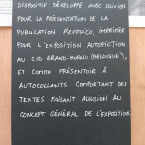 DISPOSITIF DÉVELOPPÉ AVEC OLIVIER
POUR LA PRÉSENTATION DE LA
PUBLICATION
POUR L'EXPOSITION AUTOFICTION
AU CID GRAND-HORNU (BELGIQUE),
ET COMME PRÉSENTOIR À
AUTOCOLLANTS COMPORTANT DES
TEXTES FAISANT ALLUSION AU
CONCEPT GÉNÉRAL DE L'EXPOSITION.